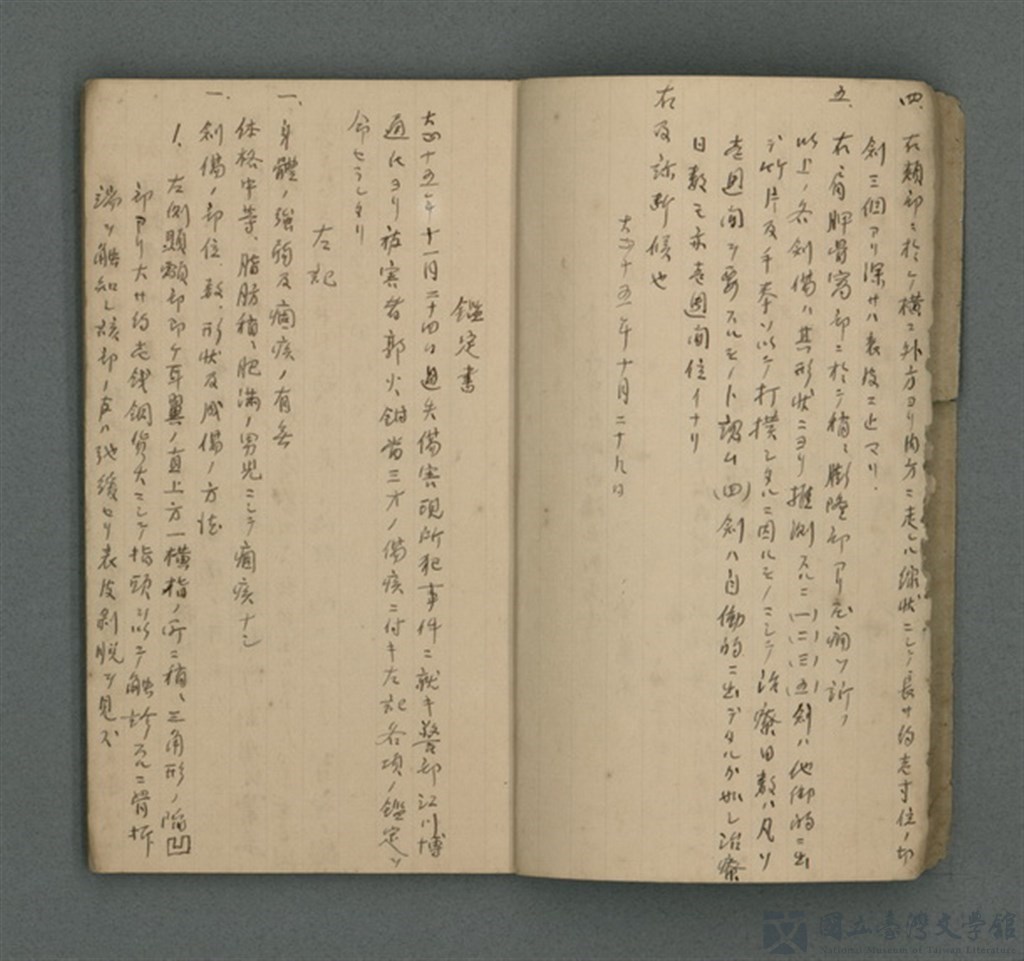 四、右頬部ニ於ケ横ニ外方ヨリ内方ニ走レル線状ニシテ長サ約壱寸位ノ切
創三個アリ深サハ表皮ニ止マリ.
五、右肩胛骨窩部ニ於テ稍々膨隆部アリ圧痛ヲ訴フ
以上ノ各創傷ハ其形状ニヨリ推測スルニ(一)(二)(三)(五)創ハ他働的ニ出
デ竹片及手拳ヲ以テ打撲シタルニ因ルモノニシテ治療日数ハ凡ソ
壱週間ヲ要スルモノト認ム(四)創ハ自働的ニ出デタルガ如シ治療
日数モ亦壱週間位イナリ
右及診断候也
大正十五年十月二十九日
鑑定書
大正十五年十一月二十四日過失傷害現所犯事件ニ就キ警部江川博
通ヒヨリ被害者郭火鉗当三才ノ傷疾ニ付キ左記各項ノ鑑定ヲ
命セラレタリ
左記
一、身體ノ強弱及痼疾ノ有無
体格中等、脂肪稍々肥満ノ男児ニシテ痼疾ナシ
一、創傷ノ部位、数、形状及成傷ノ方法
1. 左側顳顬部即ケ耳翼ノ直上方一横指ノ所ニ稍々三角形ノ陥凹
部アリ大サ約壱銭銅貨大ニシテ指頭ヲ以テ触診スルニ骨折
端ヲ触知シ該部ノ皮ハ弛緩セリ表皮剥脱ヲ見ズ
國立臺灣文學館
National Museum of Taiwan Literature